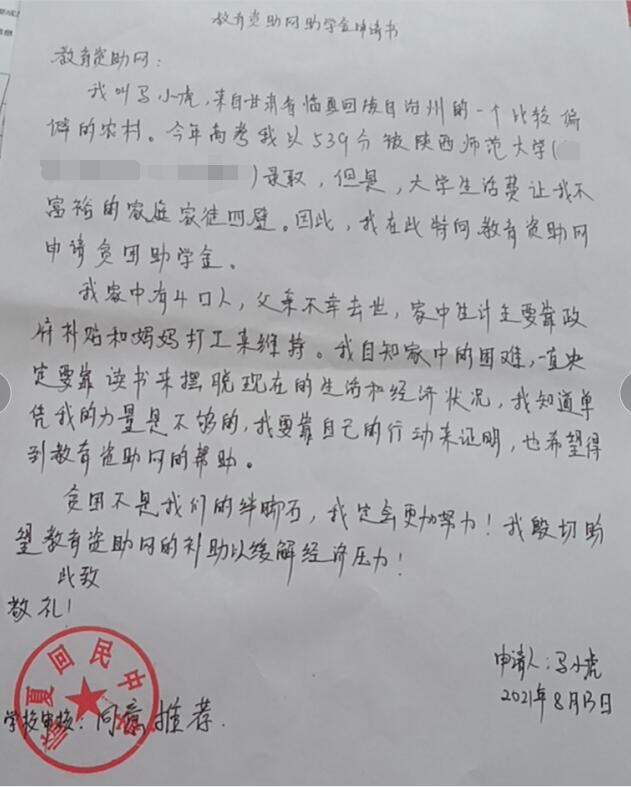 教育资助网助学金申请书
教育资助网：
我叫马小虎，来自甘肃省临夏回族自治州的一个比较偏
僻的农村。今年高考我以539分被陕西师范大学(
)录取，但是，大学生活费让我不
富裕的家庭家徒四壁。因此，我在此特向教育资助网
申请贫困助学金。
我家中有4口人，父亲不幸去世，家中生计主要靠政
府补贴和妈妈打工来维持。我自知家中的困难，一直决
定要靠读书来摆脱现在的生活和经济状况，我知道单
凭我的力量是不够的，我要靠自己的行动来证明，也希望得
到教育资助网的帮助。
贫困不是我们的绊脚石，我定会更加努力！我殷切盼
望教育资助网的补助以缓解经济压力！
此致
敬礼！
申请人：马小虎
2021年8月13日
夏回民中
学校审核：同意推荐.